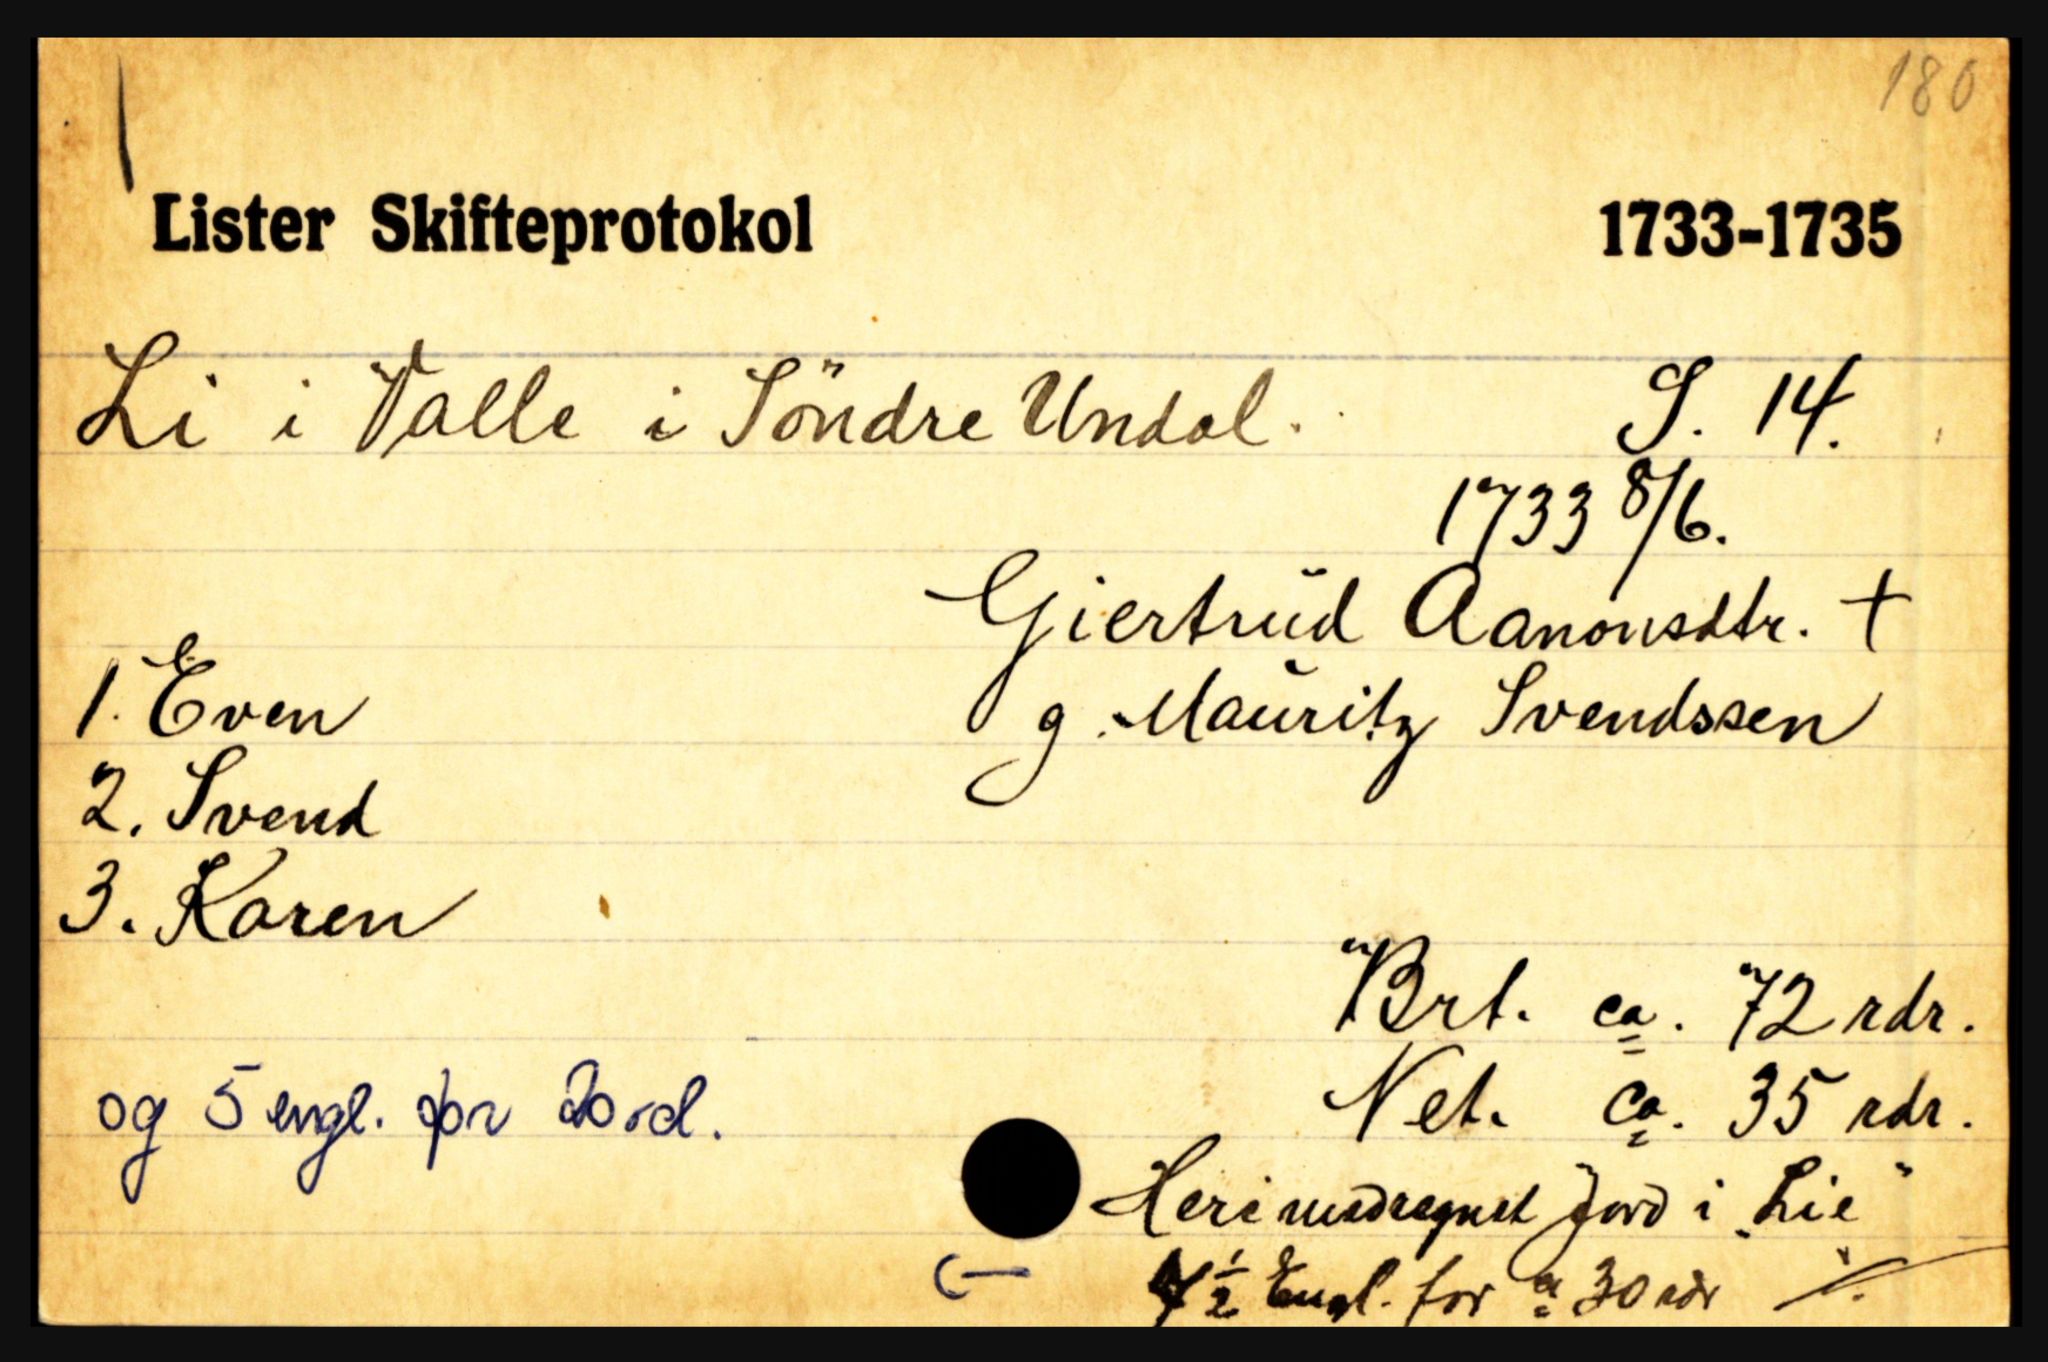 180
Lister Skifteprotokol 1733-1735
Li i Valle i Söndre Undal. S. 14.
1733 8/6.
Giertrud Aanonsdtr. †
1. Even g. Mauritz Svendssen
2. Svend
3. Karen
Brt. ca. 72 rdr.
og 5 engl. for 20 rd. Net. ca. 35 rdr.
Heri medregnet Jord i "Lie"
½ Engl. for a 30 rdr ./.